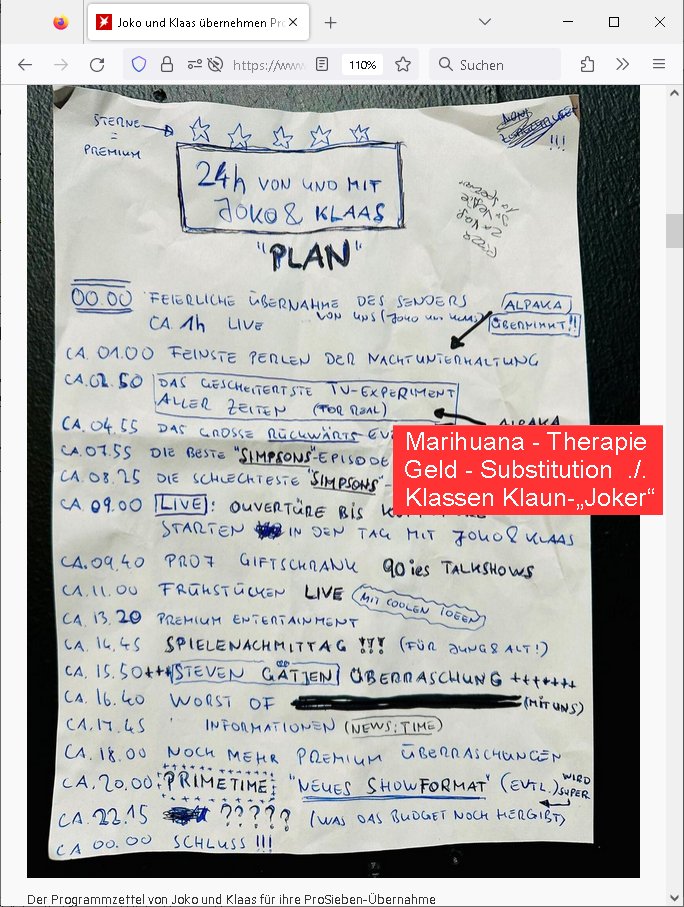 Joko und Klaas übernehmen Pro
https://www
110%
Suchen
STERNE
=
PREMIUM
!!!
24h VON UND MIT
JOKO & KLAAS
"PLAN"
00.00 FEIERLICHE ÜBERNAHME DES SENDERS
VON UNS (JOKO UND KLAAS)
CA. 1h LIVE
ALPAKA
ÜBERNIMMT!!
CA. 01.00 FEINSTE PERLEN DER NACHTUNTERHALTUNG
CA. 02.50 DAS GESCHEITERTSTE TV-EXPERIMENT
ALLER ZEITEN (FOR REAL)
ALPAKA
CA. 04.55 DAS GROSSE RÜCKWÄRTS
CA. 07.55 DIE BESTE "SIMPSONS"-EPISODE
CA. 08.25 DIE SCHLECHTESTE "SIMPSONS"-
Marihuana - Therapie
Geld - Substitution ./.
Klassen Klaun-„Joker“
CA. 09.00 LIVE: OUVERTÜRE BIS
STARTEN IN DEN TAG MIT JOKO & KLAAS
CA. 09.40 PRO7 GIFTSCHRANK 90ies TALKSHOWS
CA. 11.00 FRÜHSTÜCKEN LIVE (MIT COOLEN IDEEN)
CA. 13.20 PREMIUM ENTERTAINMENT
CA. 14.45 SPIELENACHMITTAG !!! (FÜR JUNG & ALT!)
CA. 15.50+++ STEVEN GÄTJEN ÜBERRASCHUNG +++++++
CA. 16.40 WORST OF (MIT UNS)
CA. 17.45 INFORMATIONEN (NEWS:TIME)
CA. 18.00 NOCH MEHR PREMIUM ÜBERRASCHUNGEN
CA. 20.00 PRIMETIME "NEUES SHOWFORMAT" (EVTL.) WIRD SUPER
CA. 22.15 ????? (WAS DAS BUDGET NOCH HERGIBT)
CA 00.00 SCHLUSS !!!
Der Programmzettel von Joko und Klaas für ihre ProSieben-Übernahme